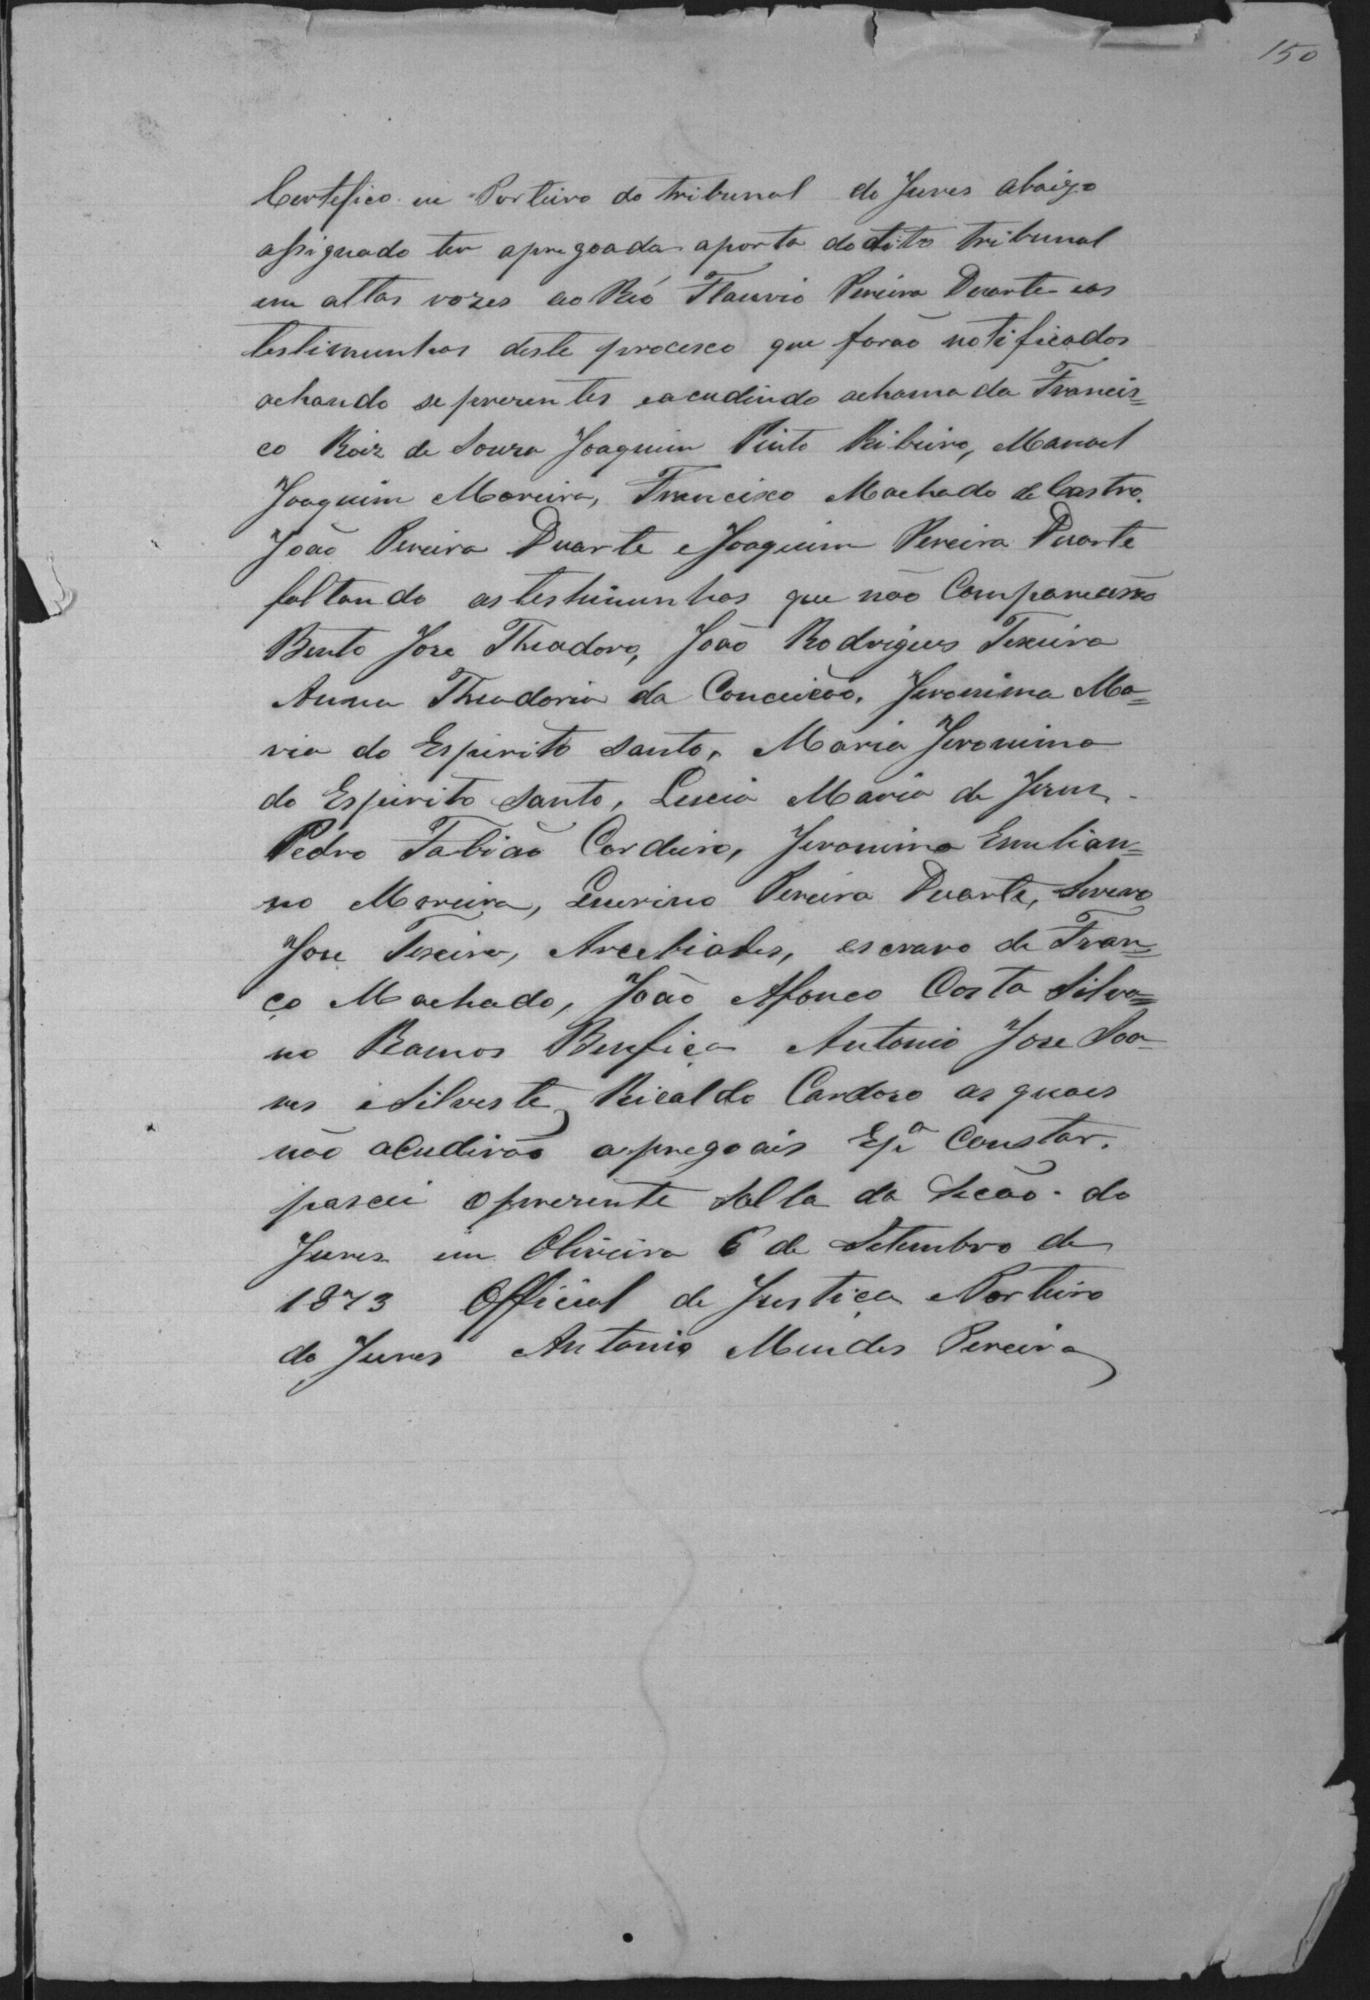 150
Certefico eu Porteiro do tribunal do Jures abaixo
assignado ter apregoada aporta do dito tribunal
em altas vozes ao Reó Flauvio Pereira Duarte eas
testimunhas deste procesco que forão notificados
achando se prezentes eacudindo achamada Francis=
co Roiz de Souza Joaquim Pinto Ribeiro, Manoel
Joaquim Moreira, Francisco Machado de Castro.
João Pereira Duarte e Joaquim Pereira Duarte
faltando astestimunhas que não Compareceão
Bento Joze Theadoro, João Rodrigues Texeira
Anna Theadoria da Conceicão, Jeronima Ma=
ria do Espirito Santo, Maria Jeronima
do Espirito Santo, Luciá Maria de Jezus.
Pedro Fabião Cordeiro, Jeronimo Emilian=
no Moreira, Querino Pereira Duarte, Severo
Joze Texeira, Arcebiades, escravo de Fran=
co Machado, João Afonco Costa Silva=
no Ramos Benfica Antonio Joze Soa=
res e Silveste Ricaldo Cardozo as quaes
não acudirão aspregoais Epª Constar.
pascei oprezente Salla da Secão do
Jures em Oliveira 6 de Setembro de
1873 Official de Justiça e Porteiro
do Jures Antonio Mendes Pereira